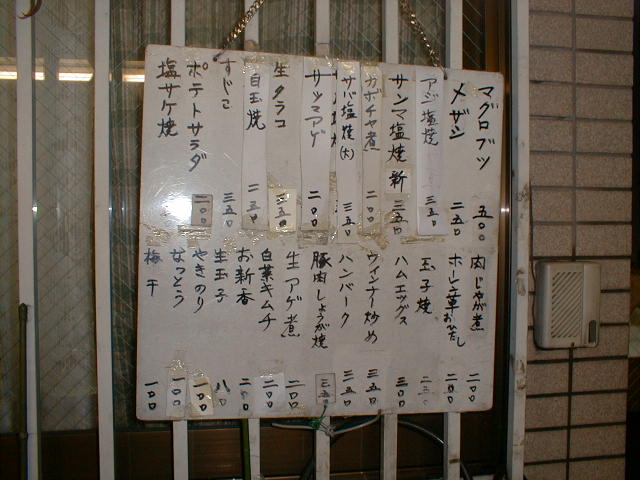 マグロブツ 五〇〇
メザシ 二五〇
アジ塩焼 三五〇
サンマ塩焼 新 三五〇
カボチャ煮 二〇〇
サバ塩焼(大) 三五〇
サツマアゲ 二〇〇
生タラコ 三五〇
目玉焼 二五〇
すじこ 三五〇
ポテトサラダ 二〇〇
塩サケ焼
肉じゃが煮 二〇〇
ホーレン草おひたし 二〇〇
玉子焼 二五〇
ハムエッグス 三〇〇
ウィンナー炒め 三五〇
ハンバーク 三五〇
豚肉しょうが焼 三五〇
生アゲ煮 二〇〇
白菜キムチ 二〇〇
お新香 二〇〇
生玉子 八〇
やきのり 一〇〇
なっとう 一〇〇
梅干 一〇〇